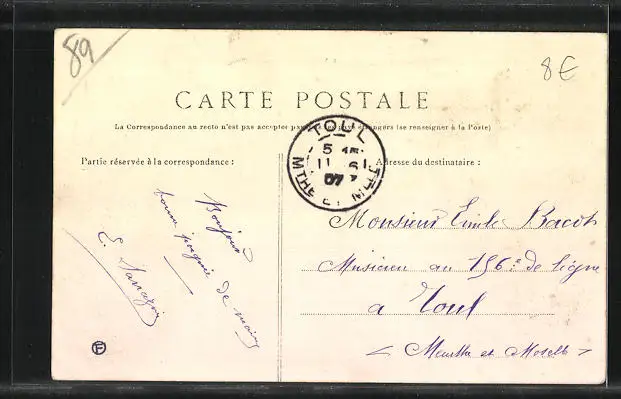 89
8€
CARTE POSTALE
La Correspondance au recto n'est pas acceptée par les pays étrangers (se renseigner à la Poste)
Partie réservée à la correspondance :
Adresse du destinataire :
TOUL
5
11 6
07
MTHE ET MLLE
Bonjour
bonne poignée de main
E. Sarrazin
Monsieur Emile Bacot
Musicien au 156e de ligne
a Toul
Meurthe et Moselle